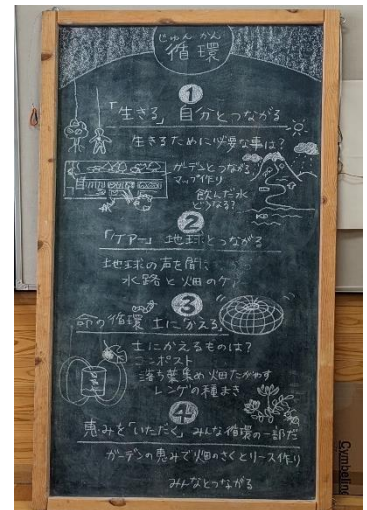 じゅんかん
循環
1
「生きる」 自分とつながる
生きるために必要な事は?
ガーデンとつながる
マップ作り
飲んだ水
どうなる?
2
「ケアー」 地球とつながる
地球の声を聞く
水路と畑のケア
3
命の循環 土にかえる
土にかえるものは?
コンポスト
落ち葉集め 畑たがやす
レンゲの種まき
4
恵みを「いただく」 みんな循環の一部だ
ガーデンの恵みで畑のさくとリース作り
みんなとつながる
Cymbeline